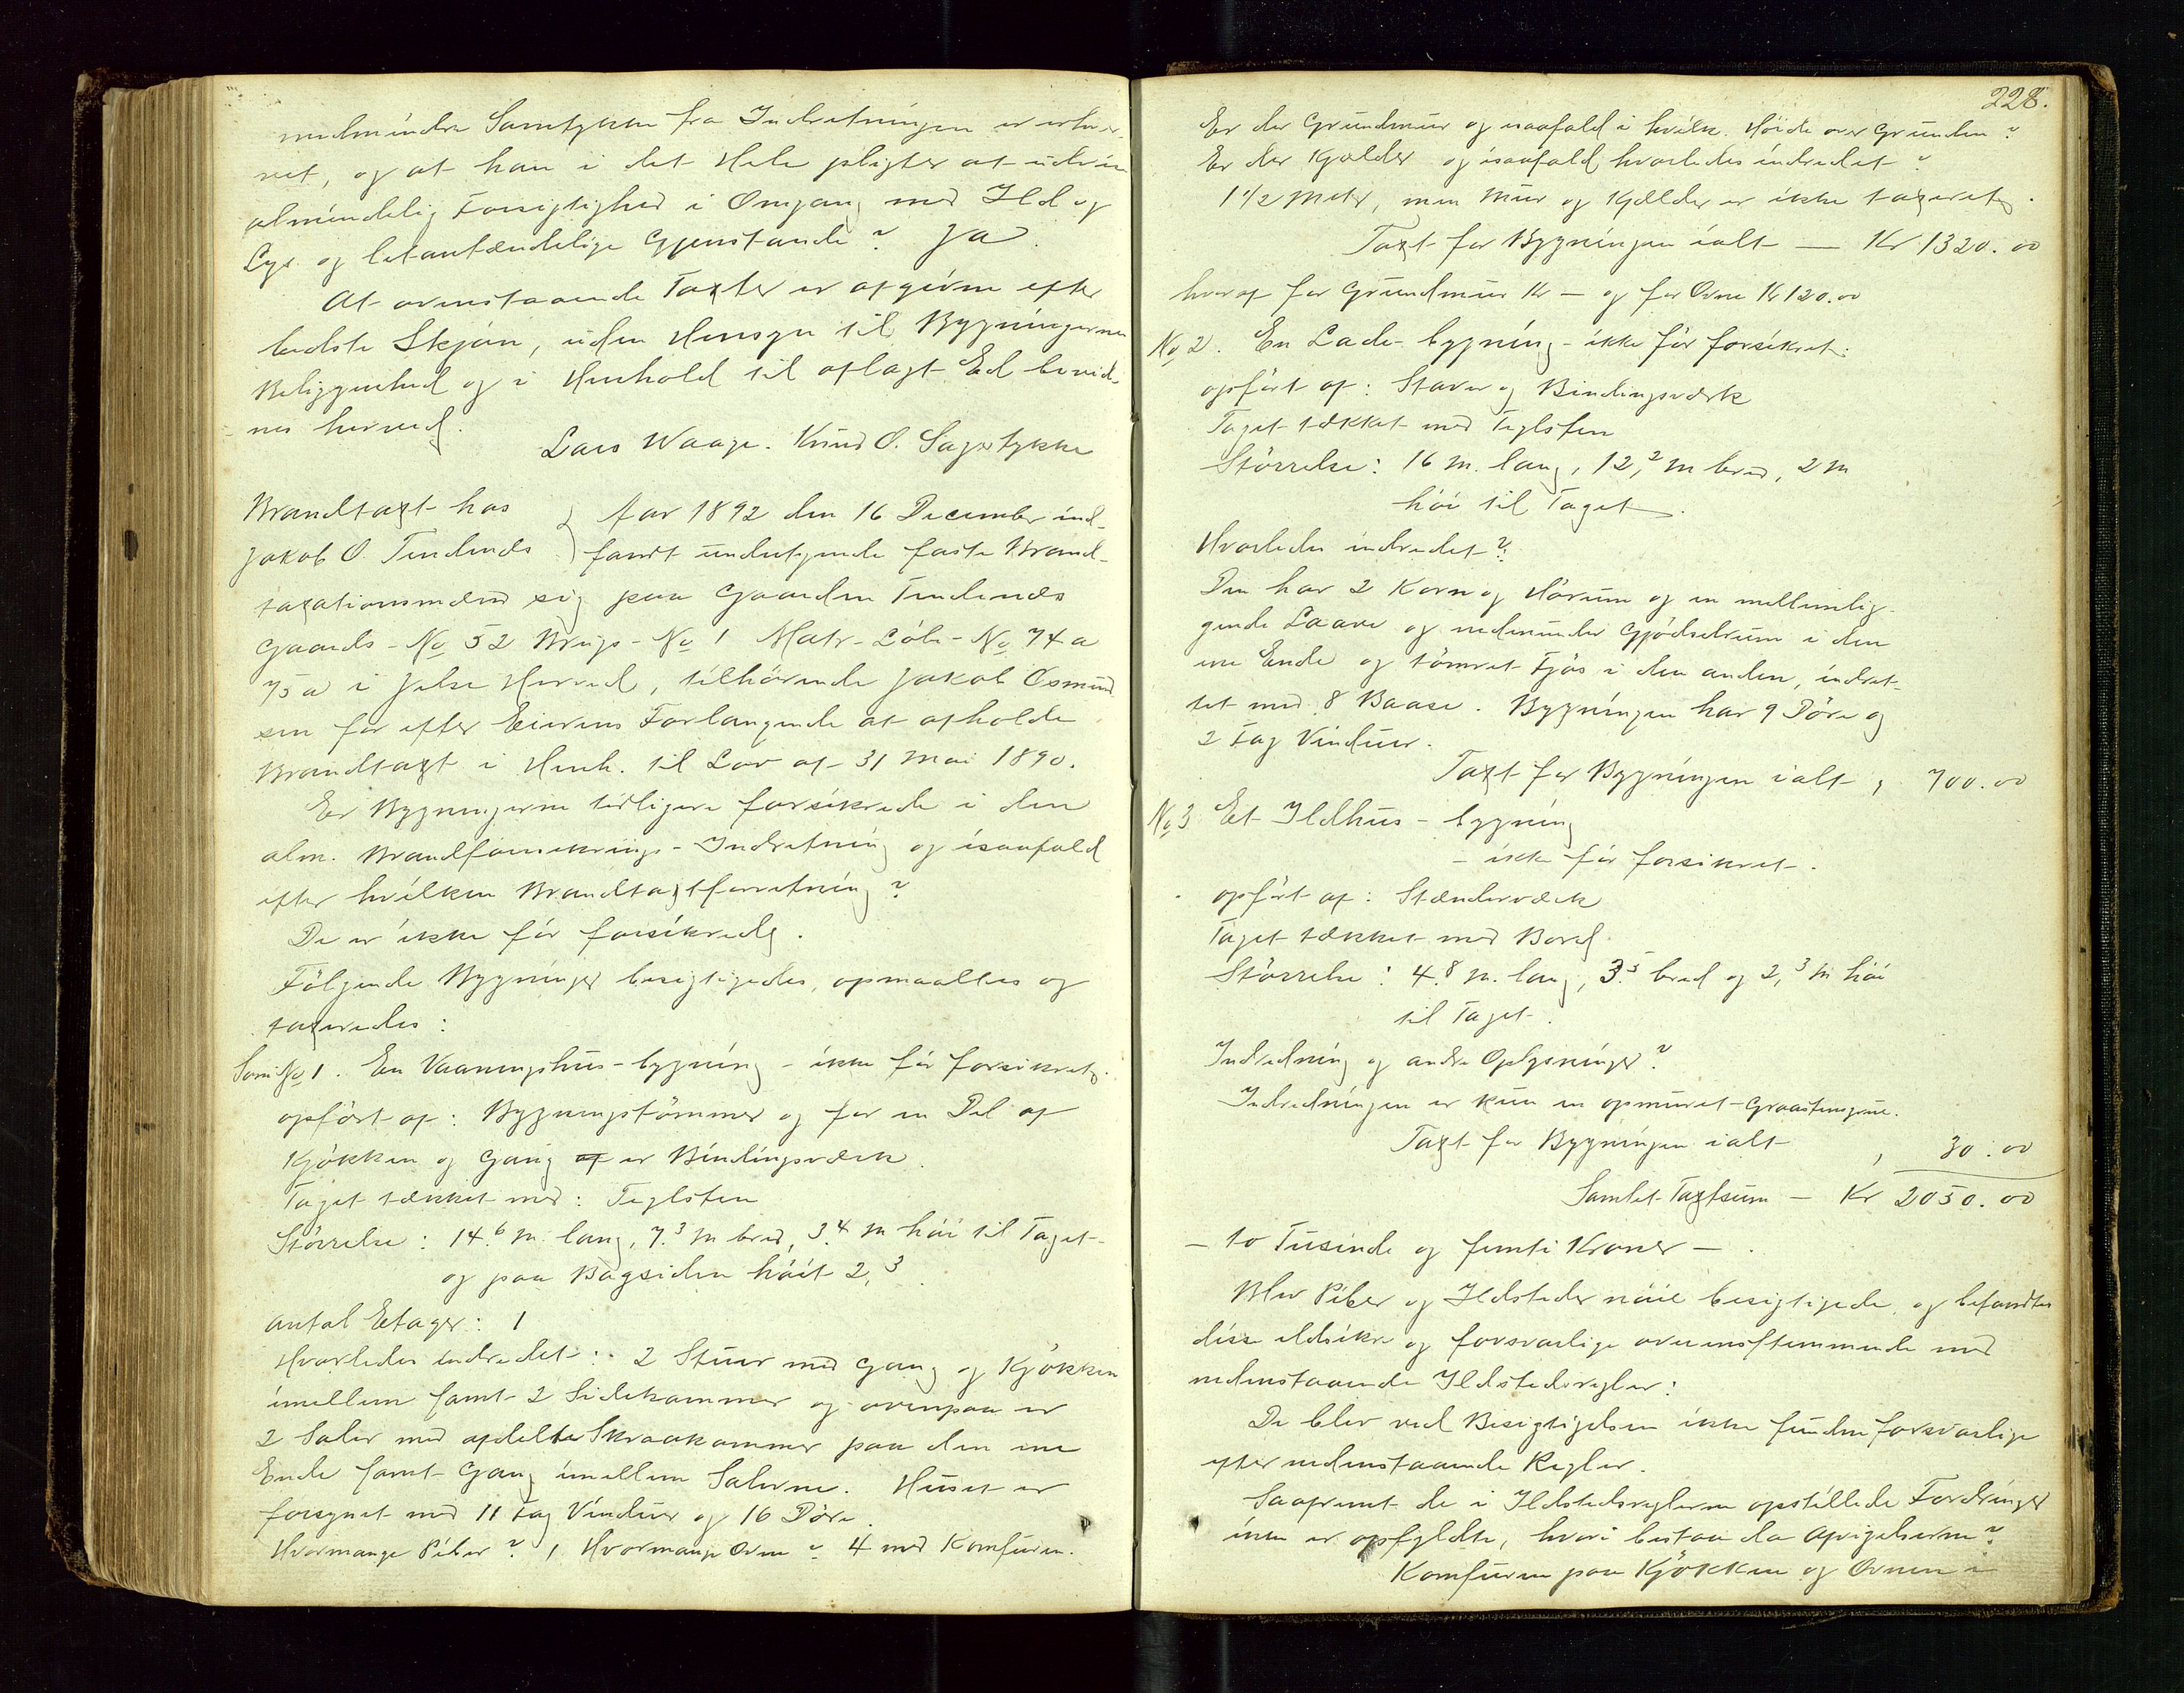 medmindre Samtykke fra Indretningen er erhver-
vet, og at han i det Hele pligter at udvise
almindelig Forsigtighed i Omgang med Ild og
Lys og letantændelige Gjenstande? Ja.
At ovenstaaende Taxter er afgivne efter
bedste Skjøn, uden Hensyn til Bygningernes
Beliggenhed og i Henhold til aflagt Ed bevid-
nes herved.
Lars Waage. Knud O. Sagstykke
Brandtaxt hos
Jakob O. Tendenæs
Aar 1892 den 16 December ind-
fandt undertegnede faste Brand-
taxationsmænd sig paa Gaarden Tendenæs
Gaards-No 52 Brugs-No 1 Matr-Löbe-No 74a
75a i Jelse Herred, tilhörende Jakob Osmund-
sen for efter Eierens Forlangende at afholde
Brandtaxt i Henh. til Lov af 31 Mai 1890.
Er Bygningerne tidligere forsikrede i den
alm. Brandforsikrings-Indretning og isaafald
efter hvilken Brandtaxtforretning?
De er ikke för forsikrede.
Fölgende Bygninger besigtigedes, opmaaltes og
taxeredes:
Som No 1. En Vaaningshus-bygning - ikke för forsikret.
opfört af: Bygningstömmer og for en Del af
Kjökken og Gang af er Bindingsværk.
Taget tækket med: Teglsten
Störrelse: 14.6 m. lang, 7.3 m bred, 3.4 m höi til Taget
og paa Bagsiden höit 2,3.
antal Etager: 1
Hvorledes indredet: 2 Stuer med Gang og Kjökken
imellem samt 2 Sidekammer og ovenpaa er
2 Saler med afdelte Skraakammer paa den ene
Ende samt Gang imellem Salerne. Huset er
forsynet med 11 Fag Vinduer og 16 Döre.
Hvormange Piber? 1 Hvormange Ovne? 4 med Komfuren.
228.
Er der Grundmur og isaafald i hvilk. Höide over Grunden?
Er der Kjælder og isaafald hvorledes indredet?
1 1/2 Meter, men Mur og Kjælder er ikke taxeret.
Taxt for Bygningen ialt — Kr 1320.00
hvoraf for Grundmur Kr — og for Ovne Kr 120.00
No 2. En Lade-bygning - ikke för forsikret.
opfört af: Staver og Bindingsværk
Taget tækket med Teglsten
Störrelse: 16 m. lang, 12,2 m bred, 2 m
höi til Taget.
Hvorledes indredet?
Den har 2 Korn og Hörum og en mellemlig-
gende Laave og nedenunder Gjödselrum i den
ene Ende og tömret Fjös i den anden, indret-
tet med 8 Baase. Bygningen har 9 Döre og
2 Fag Vinduer.
Taxt for Bygningen ialt, 700.00
No 3 Et Ildhus-bygning
- ikke för forsikret.
opfört af: Stænderværk
Taget tækket med Bord
Störrelse: 4.8 m. lang, 3.5 bred og 2,3 m höi
til Taget.
Indredning og andre Oplysninger?
Indredningen er kun en opmuret Graastensgrue.
Taxt for Bygningen ialt , 30.00
Samlet Taxtsum — Kr 2050.00
— to Tusinde og femti Kroner —.
Blev Piber og Ildsteder nöie besigtigede, og befandtes
disse ildsikre og forsvarlige overensstemmende med
nedenstaaende Ildstedsregler:
De blev ved Besigtigelsen ikke fundne forsvarlige
efter nedenstaaende Regler.
Saafremt de i Ildstedsreglerne opstillede Fordringer
ikke er opfyldte, hvori bestaa da Afvigelserne?
Komfuren paa Kjökken og Ovnen i